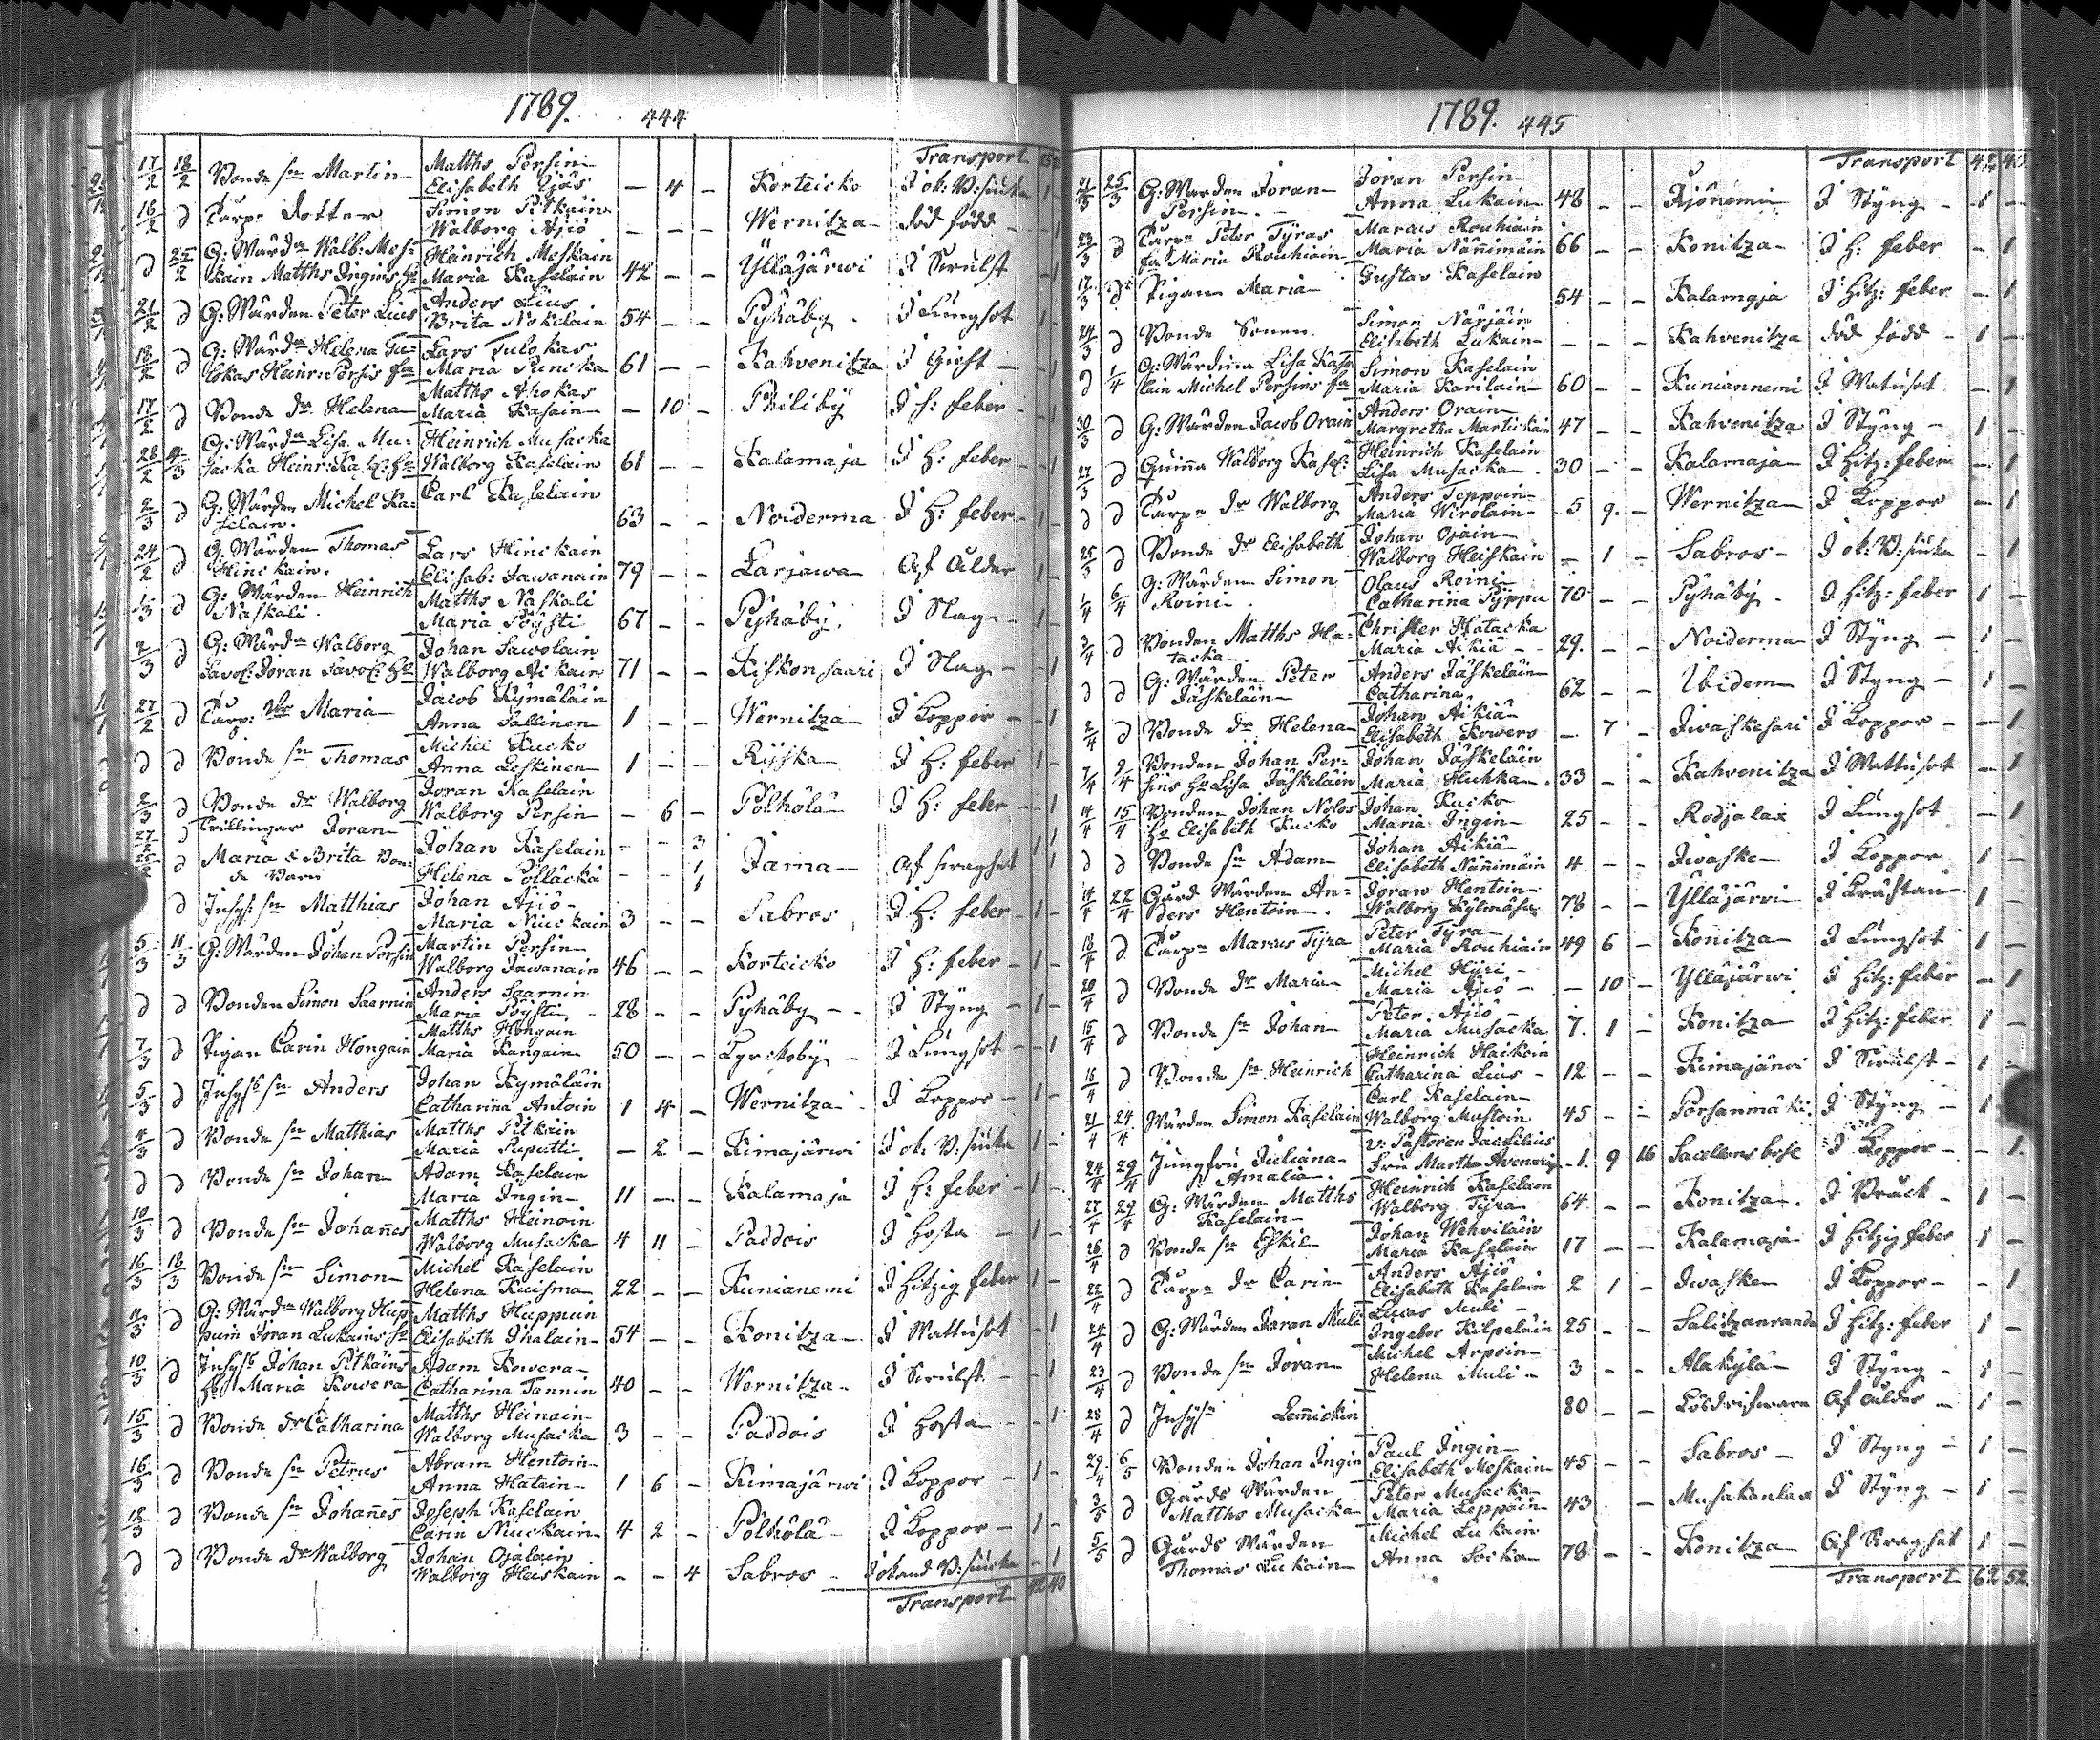 1789. 444
Transport
17/2 18/2 Bonde sn Martin Matths Persin
Elisabeth Äjös — 4 — Korteicko I ok: B:siuka 1 —
16/2 d Torp: Dotter Simon Pitkäin
Walborg Äjiö — — — Wernitza död född — 1
d 25/2 G: Wärdn Walb: Mes= Heinrich Meskain
kain Matths Ingins Hu Maria Kaselain 42 — — Ylläjärwi I Swulst — 1
21/2 d G: Wärden Peter Lius Anders Lius
Brita Nokelain 54 — — Pyhäby I Lungsot 1 —
18/2 d G: Wärdn Helena Tu= Lars Tulokas
lokas Heinr: Persis Hu Maria Puncka 61 — — Kahvenitza I Gicht — 1
17/2 d Bonde dr Helena Matths Ahokas
Maria Kasain — 10 — Philiby I h: feber — 1
28/2 4/3 G: Wärdn Lisa Mu= Heinrich Musacka
sacka Heinr: Kasel: Hu Walborg Kaselain 61 — — Kalamaja I h: feber — 1
2/3 d G: Wärden Michel Ka= Carl Kaselain
selain. 63 — — Noiderma I h: feber 1 —
24/2 d G: Wärden Thomas Lars Hinckain
Hinckain. Elisab: Tawanain 79 — — Larjawa Af Ålder 1 —
1/3 d G: Wärden Heinrich Matths Naskali
Naskali. Maria Pöysti 67 — — Pyhäby. I Slag 1 —
2/3 d G: Wärdn Walborg Johan Sawolain
Savol: Joran Savol: Hu Walborg Aickain 71 — — Kiskonsaari I Slag — 1
27/2 d Torp: dr Maria Jacob Kymäläin
Anna Sallinen 1 — — Wernitza I Koppor — 1
d d Bonde sn Thomas Michel Kucko
Anna Leskinen 1 — — Ryska I h: feber 1 —
2/3 d Bonde dr Walborg Joran Kaselain
Walborg Persin — 6 — Pölhölä I h: feber — 1
27/2 d Trillingar Joran Johan Kaselain — — 3
d Maria & Brita Bon= Helena Pölläckä — — 1 Jama Af swaghet
de Barn 1
d Inhys: sn Matthias Johan Äjiö
Maria Nuckain 3 — — Sabros I h: feber 1 —
5/3 11/3 G: Wärden Johan Persin Martin Persin
Walborg Tawanain 46 — — Korteicko I h: feber 1 —
d d Bonden Simon Saarnin Anders Saarnin
Maria Pöysti 28 — — Pyhäby I Styng 1 —
7/3 d Pigan Carin Hongain Matths Hongain
Maria Kangain 50 — — Kyrckoby I Lungsot — 1
5/3 d Inhys: sn Anders Johan Kymäläin
Catharina Antoin 1 4 — Wernitza I Koppor 1 —
4/3 d Bonde sn Matthias Matths Pitkäin
Maria Puputti — 2 — Kimajärwi I ok: B:siuka 1 —
d d Bonde sn Johan Adam Kaselain
Maria Ingin 11 — — Kalamaja I h: feber 1 —
10/3 d Bonde sn Johañes Matths Heinoin
Walborg Musacka 4 11 — Paddois I hosta 1 —
16/3 18/3 Bonde sn Simon Michel Kaselain
Helena Kuisma 22 — — Kunianemi I hitzig feber 1 —
11/3 d G: Wärdn Walborg Hup= Matths Huppuin
puin Joran Lukains Hu Elisabeth Ihalain 54 — — Konitza I Wattusot — 1
10/3 d Inhys: Johan Pitkäins Adam Kowera
Hu Maria Kowera Catharina Tannin 40 — — Wernitza I Swulst — 1
15/3 d Bonde dr Catharina Matths Heinain
Walborg Musacka 3 — — Paddois I Hosta — 1
16/3 d Bonde sn Petrus Abram Hentoin
Anna Hatain 1 6 — Kimajärwi I Koppor 1 —
18/3 d Bonde sn Johañes Joseph Kaselain
Carin Nuckain 4 2 — Pölhölä I Koppor 1 —
d d Bonde dr Walborg Johan Ojalain
Walborg Heiskain — — 4 Sabros Okänd B:siuka — 1
Transport 42 40
1789. 445
Transport 42 40
21/3 25/3 G: Warden Joran Joran Persin
Persin. Anna Lukain 48 — — Kjönemi I Styng 1 —
23/3 d Torp: Peter Tyras Marcus Rouhiain
Hu Maria Rouhiain Maria Näñimäin 66 — — Konitza I h: feber — 1
17/3 d Pigan Maria Gustav Kaselain
54 — — Kalamaja I hitz: feber — 1
24/3 d Bonde Sonen Simon Närjäin
Elisabeth Lukain — — — Kahvenitza död född 1 —
d 1/4 G: Wärdina Lisa Kase Simon Kaselain
lain Michel Persins Hu Maria Karilain 60 — — Kuniannemi I Watusot — 1
30/3 d G: Wärden Jacob Orain Anders Orain
Margretha Martickain 47 — — Kahvenitza I Styng 1 —
27/3 d Quiña Walborg Kasel: Heinrich Kaselain
Lisa Musacka 30 — — Kalamaja I hitz: feber — 1
d d Torp: dr Walborg Anders Teppoin
Maria Wirolain 5 9. — Wernitza I Koppor — 1
25/3 d Bonde dr Elisabeth Johan Ojain
Walborg Heiskain — 1 — Sabros I ok: B:siuka — 1
1/4 6/4 G: Wärden Simon Olaus Roini
Roini. Catharina Pyppu 70 — — Pyhäby. I hitz: feber 1 —
3/4 d Bonden Matths Ha= Christer Hatacka
tacka. Maria Aikiä 29. — — Noiderma I Styng 1 —
d d G: Wärden Peter Anders Jäskeläin
Jäskeläin Catharina. 62 — — Ibidem I Styng 1 —
2/4 d Bonde dr Helena Johan Aikiä
Elisabeth Kowero — 7 — Iwaskesari I Koppor — 1
7/4 9/4 Bonden Johan Per= Johan Jäskeläin
sins Hu Lisa Jäskeläin Maria Huhka 33 — — Kahvenitza I Wattusot — 1
14/4 15/4 Bonden Johan Nolos Johan Kucko
Hu Elisabeth Kucko Maria Ingin 25 — — Rodjalax I Lungsot — 1
d d Bonde sn Adam Johan Aikiä
Elisabeth Näñimäin 4 — — Iwaske I Koppor 1 —
14/4 22/4 Gård Wärden An= Joran Hentoin
ders Hentoin. Walborg 78 — — Ylläjärwi I Kräftan 1 —
18/4 d Torp: Marcus Tyra Peter Tyra
Maria Rouhiain 49 6 — Konitza I Lungsot 1 —
20/4 d Bonde dr Maria Michel Hyri
Maria Äjiö — 10 — Ylläjärwi I hitz: feber — 1
15/4 d Bonde sn Johan Peter Äjiö
Maria Musacka 7. 1 — Konitza I hitz: feber 1 —
16/4 d Bonde sn Heinrich Heinrich Haikoin
Catharina Lius 12 — — Kimajärwi I Swulst 1 —
21/4 24/4 Wärden Simon Kaselain Carl Kaselain
Walborg Mustoin 45 — — Porsanmäki I Styng 1 —
24/4 29/4 Jungfru Juliana v: Pastoren
Amalia. Fru Martha Avenarius 1. 9 16 Sacellansbole I Koppor — 1.
27/4 29/4 G: Wärden Matths Heinrich Kaselain
Kaselain Walborg Tyra 64 — — Konitza. I Bråck 1 —
26/4 d Bonde sn Eskil Johan Wehviläin
Maria Kaselain 17 — — Kalamaja I Hitzig feber 1 —
22/4 d Torp: dr Carin Anders Äjiö
Elisabeth Kaselain 2 1 — Iwaske I Koppor — 1
24/4 d G: Wärden Joran Muli Lucas Muli
Ingebor Kilpeläin 25 — — Salitzanranda I hitz: feber 1 —
23/4 d Bonde sn Joran Michel Arpoin
Helena Muli 3 — — Alakylä I Styng 1 —
28/4 d Inhysn Lemickin 80 — — Af ålder 1 —
29/4 6/5 Bonden Johan Ingin Paul Ingin
Elisabeth Meskain 45 — — Sabros I Styng 1 —
3/5 d Gårds Wärden Peter Musacka
Matths Musacka Maria Leppäin 43 — Musakanlax I Styng 1 —
5/5 d Gårds Wärden Michel Lukain
Thomas Lukain Anna Socka 78 — — Konitza Af Swaghet 1 —
Transport 62 52